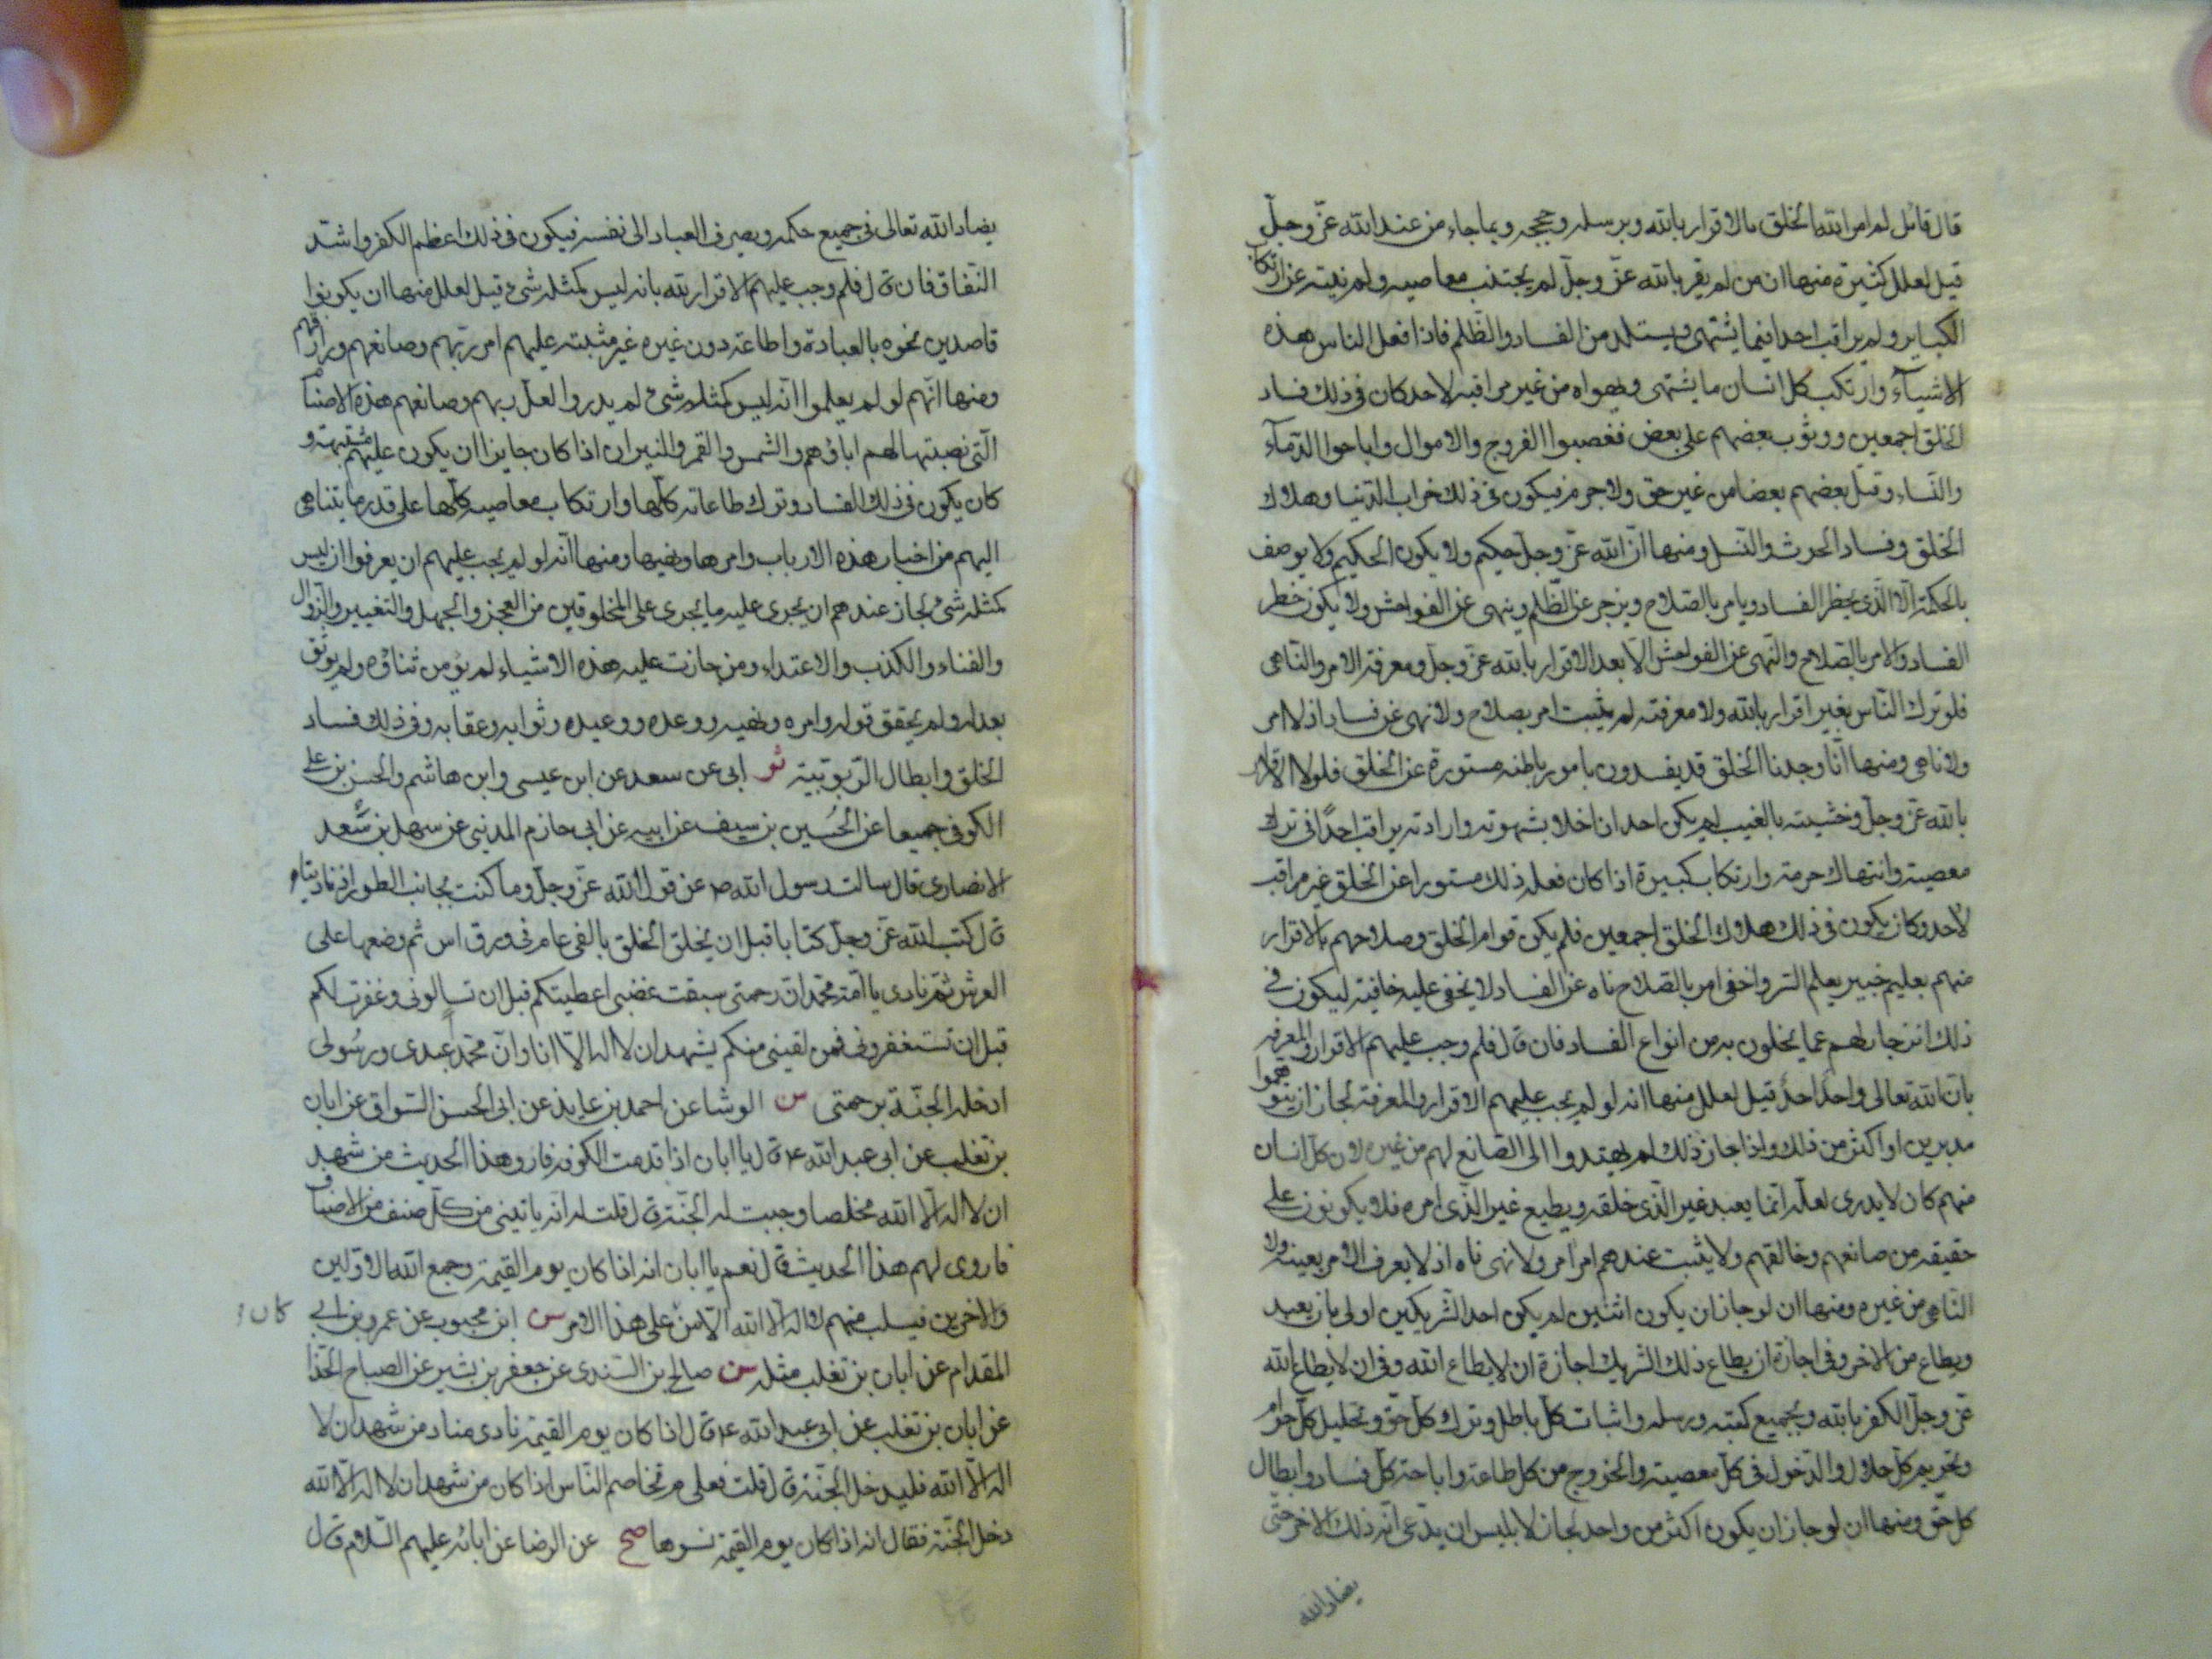 قال قائل لم امر الله الخلق بالاقرار بالله وبرسله وحججه وبما جاء من عند الله عزّ وجلّ
قيل لعلل كثيرة منها ان من لم يقر بالله عزّ وجلّ لم يجتنب معاصيه ولم ينته عن ارتكاب
الكباير ولم يراقب احدا فيما يشتهى ويستلذ من الفساد والظلم فاذا فعل الناس هذه
الاشيآء وارتكب كل انسان ما يشتهى ويهواه من غير مراقبه لاحد كان فى ذلك فساد
الخلق اجمعين ووثوب بعضهم على بعض فغصبوا الفروج والاموال واباحوا الدمآء
والنساء وقتل بعضهم بعضا من غير حق ولا جرم فيكون فى ذلك خراب الدنيا وهلاك
الخلق وفساد الحرث والنسل ومنها ان الله عزّ وجلّ حكيم ولا يكون الحكيم ولا يوصف
بالحكمة الا الذى يحظر الفساد ويامر بالصلاح ويزجر عن الظلم وينهى عن الفواحش ولا يكون حظر
الفساد والامر بالصلاح والنهى عن الفواحش الا بعد الاقرار بالله عزّ وجلّ ومعرفة الامر والناهى
فلو ترك الناس بغير اقرار بالله ولا معرفته لم يثبت امر بصلاح ولا نهى عن فساد اذ لا امر
ولا ناهى ومنها انا وجدنا الخلق قد يفسدون بامور باطنه مستورة عن الخلق فلولا الاقرار
بالله عزّ وجلّ وخشيته بالغيب لم يكن احد اذا خلا بشهوته وارادته يراقب احدًا فى ترك
معصية وانتهاك حرمة وارتكاب كبيرة اذا كان فعله ذلك مستورا عن الخلق غير مراقب
لاحد وكان يكون فى ذلك هلاك الخلق اجمعين فلم يكن قوام الخلق وصلاحهم الا بالاقرار
منهم بعليم خبير يعلم السر واخفى امر بالصلاح ناه عن الفساد لا يخفى عليه خافية ليكون فى
ذلك انزجار لهم عما يخلون به من انواع الفساد فان قال فلم وجب عليهم الاقرار والمعرفه
بان الله تعالى واحد احد قيل لعلل منها انه لو لم يجب عليهم الاقرار والمعرفة لجاز ان يتوهموا
مدبرين او اكثر من ذلك واذا جاز ذلك لم يهتدوا الى الصانع لهم من غيره لان كل انسان
منهم كان لا يدرى لعله انما يعبد غير الذى خلقه ويطيع غير الذى امره فلا يكونون على
حقيقه من صانعهم وخالقهم ولا يثبت عندهم امر امر ولا نهى ناه اذ لا يعرف الامر بعينه ولا
الناهى من غيره ومنها ان لو جاز ان يكون اثنين لم يكن احد الشريكين اولى بان يعبد
ويطاع من الاخر وفى اجازة ان يطاع ذلك الشريك اجازة ان لا يطاع الله وفى ان لا يطاع الله
عزّ وجلّ الكفر بالله وبجميع كتبه ورسله واثبات كل باطل وترك كل حق وتحليل كل حرام
وتحريم كل حلال والدخول فى كل معصية والخروج من كل طاعة واباحة كل فساد وابطال
كل حق ومنها ان لو جاز ان يكون اكثر من واحد لجاز لابليس ان يدعى انه ذلك الاخر حتى
يضاد الله
يضاد الله تعالى فى جميع حكمه ويصرف العباد الى نفسه فيكون فى ذلك اعظم الكفر واشد
النفاق فان قال فلم وجب عليهم الاقرار لله بانه ليس كمثله شىء قيل لعلل منها ان يكونوا
قاصدين نحوه بالعبادة والطاعة دون غيره غير مشتبه عليهم امر ربهم وصانعهم ورازقهم
ومنها انهم لو لم يعلموا انه ليس كمثله شىء لم يدروا لعل ربهم وصانعهم هذه الاصنام
التى نصبتها لهم اباؤهم والشمس والقمر والنيران اذا كان جايزا ان يكون عليهم مشتبهة و
كان يكون فى ذلك الفساد وترك طاعاته كلها وارتكاب معاصيه كلها على قدر ما يتناهى
اليهم من اخبار هذه الارباب وامرها ونهيها ومنها انه لو لم يجب عليهم ان يعرفوا ان ليس
كمثله شىء لجاز عندهم ان يجرى عليه ما يجرى على المخلوقين من العجز والجهل والتغيير والزوال
والفناء والكذب والاعتداء ومن جازت عليه هذه الاشياء لم يؤمن فناؤه ولم يوثق
بعدله ولم يحقق قوله وامره ونهيه ووعده ووعيده وثوابه وعقابه وفى ذلك فساد
الخلق وابطال الربوبية ثو ابى عن سعد عن ابن عيسى وابن هاشم والحسن بن على
الكوفى جميعا عن الحُسين بن سيف عن ابيه عن ابى حازم المدينى عن سهل بن سَعد
الانصارى قال سالت رسول الله ص عن قول الله عزّ وجلّ وما كنت بجانب الطور اذ نادينا
قال كتب الله عزّ وجلّ كتابا قبل ان يخلق الخلق بالفى عام فى ورق اس ثم وضعها على
العرش ثم نادى يا امة محمد ان رحمتى سبقت غضبى اعطيتكم قبل ان تسالونى وغفرت لكم
قبل ان تستغفرونى فمن لقينى منكم يشهد ان لا اله الّا انا وانّ محمّد عبدى ورسُولى
ادخله الجنّة برحمتى سن الوشا عن احمد بن عايذ عن ابى الحسن السواق عن ابان
بن تغلب عن ابى عبد الله ع قال يا ابان اذا قدمت الكوفه فارو هذا الحديث من شهد
ان لا اله الا الله مخلصا وجبت له الجنّة قال قلت له انه ياتينى من كل صنف من الاصناف
فاروى لهم هذا الحديث قال نعم يا ابان انه اذا كان يوم القيمة وجمع الله الاولين
والاخرين فيسلب منهم لا اله الا الله الا من على هذا الامر سن ابن محبوب عن عمرو بن ابى
كان
المقدام عن ابان بن تغلب مثله سن صالح بن السندى عن جعفر بن بشير عن الصباح الحذا
عن ابان بن تغلب عن ابى عبد الله ع قال اذا كان يوم القيمة نادى مناد من شهد ان لا
اله الا الله فليدخل الجنّة قال قلت فعلى م تخاصم الناس اذا كان من شهد ان لا اله الا الله
دخل الجنّة فقال انه اذا كان يوم القيمة نسوها صح عن الرضا عن ابائه عليهم السّلام قال